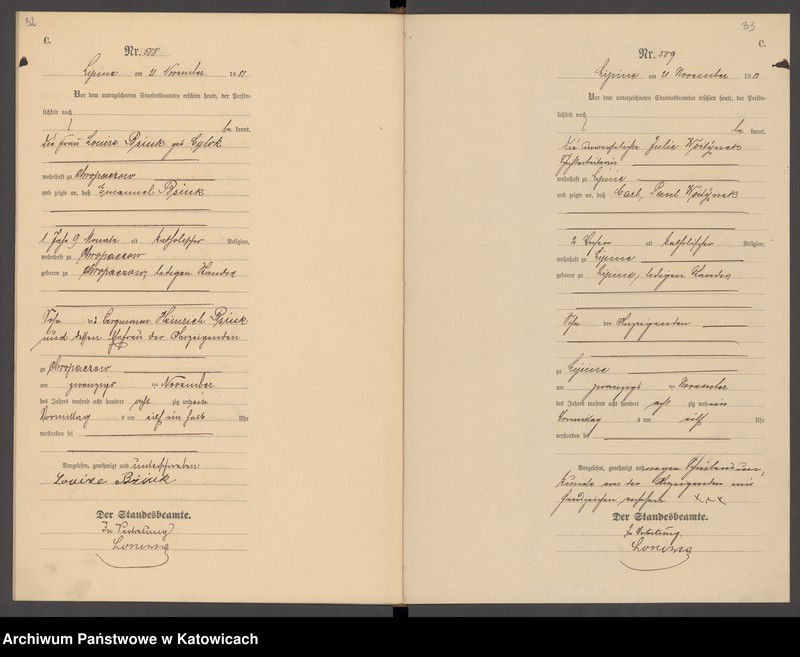 32
C.
Nr. 508
Lipine am 21 November 18 81
Vor dem unterzeichneten Standesbeamten erschien heute, der Persön-
lichkeit nach
be kannt,
die Frau Louise Bziuk geb Cylok
wohnhaft zu Chropaczow
und zeigte an, daß Emanuel Bziuk
1 Jahr 9 Monate alt katholischer Religion,
wohnhaft zu Chropaczow
geboren zu Chropaczow, ledigen Standes
Sohn des Bergmann Heinrich Bziuk
und dessen Ehefrau der Anzeigenden
zu Chropaczow
am zwanzigs ten November
des Jahres tausend acht hundert acht zig und
Vormittag s um elf ein halb Uhr
verstorben sei
Vorgelesen, genehmigt und unterschrieben
Louise Bziuk
Der Standesbeamte.
In Vertretung
33
C.
Nr. 509
Lipine am 21 November 18 81
Vor dem unterzeichneten Standesbeamten erschien heute, der Persön-
lichkeit nach
be kannt,
die unverehelichte Julie Woitynek
wohnhaft zu Lipine
und zeigte an, daß Carl, Paul Woitynek
2 Wochen alt katholischer Religion,
wohnhaft zu Lipine
geboren zu Lipine, ledigen Standes
Sohn der Anzeigenden
zu Lipine
am zwanzigs ten November
des Jahres tausend acht hundert acht zig und ein
Vormittag s um elf Uhr
verstorben sei
Vorgelesen, genehmigt und wegen Schreibensun-
kunde von der Anzeigenden mit
Handzeichen versehen xxx
Der Standesbeamte.
In Vertretung.
Archiwum Państwowe w Katowicach